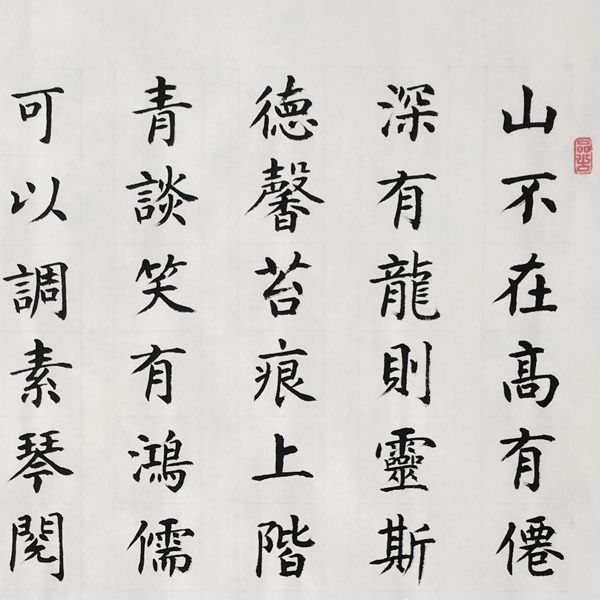 山不在高有僊
深有龍則靈斯
德馨苔痕上階
青談笑有鴻儒
可以調素琴閱